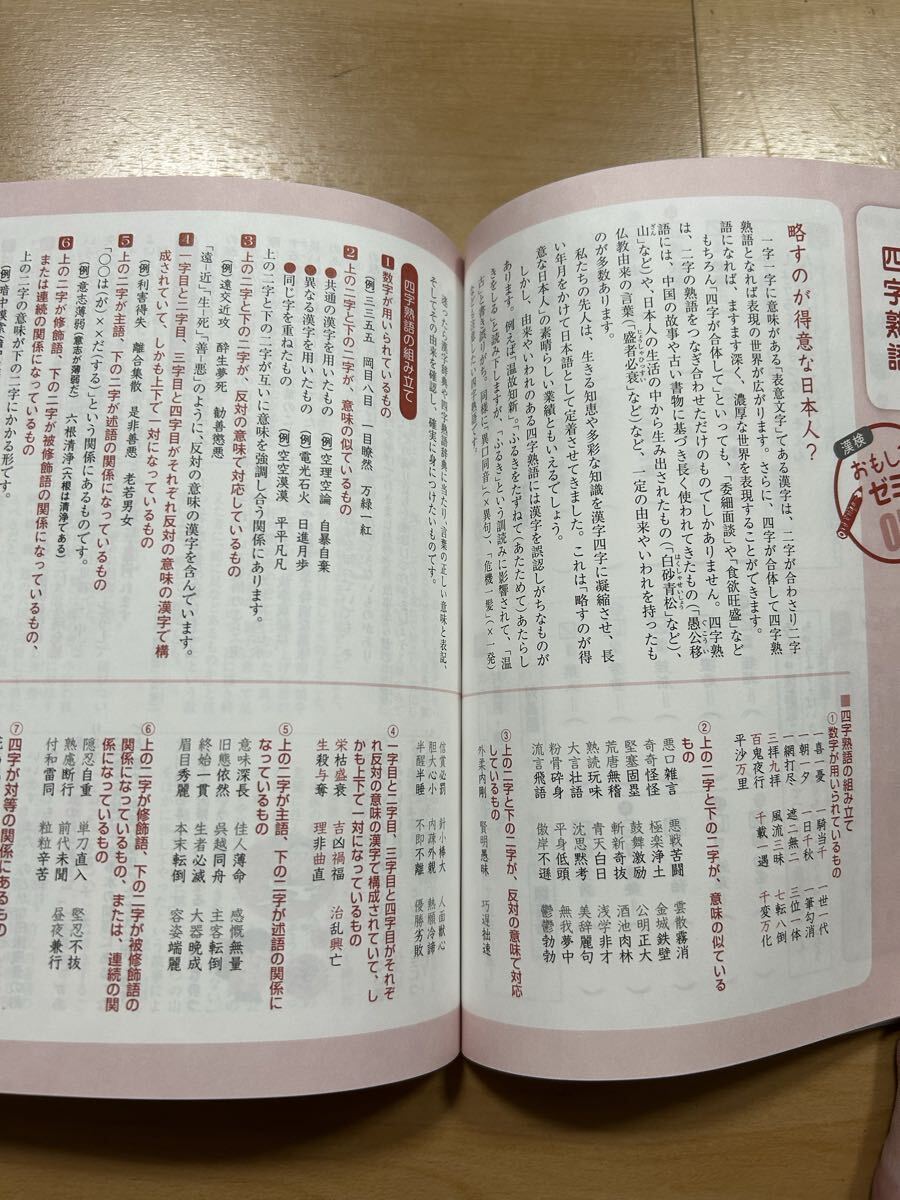 四字熟語
漢検
おもし
ゼミ
略すのが得意な日本人?
一字一字に意味がある「表意文字」である漢字は、二字が合わさり二字
熟語となれば表現の世界が広がります。さらに、四字が合体して四字熟
語になれば、ますます深く、濃厚な世界を表現することができます。
もちろん「四字が合体して」といっても、「委細面談」や「食欲旺盛」など
は、二字の熟語をつなぎ合わせただけのものでしかありません。四字熟
語には、中国の故事や古い書物に基づき長く使われてきたもの(「愚公移
山」など)や、日本人の生活の中から生み出されたもの(「白砂青松」など)、
仏教由来の言葉(「盛者必衰」など)など、一定の由来やいわれを持ったも
のが多数あります。
私たちの先人は、生きる知恵や多彩な知識を漢字四字に凝縮させ、長
い年月をかけて日本語として定着させてきました。これは「略すのが得
意な日本人」の素晴らしい業績ともいえるでしょう。
しかし、由来やいわれのある四字熟語には漢字を誤認しがちなものが
あります。例えば、「温故知新」。「ふるきをたずねて(あたためて)あたらし
きをしる」と読み下しますが、「ふるき」という訓読みに影響されて、「温
古」と書き誤りがち。同様に、「異口同音」(×異句)、「危機一髪」(×一発)
迷ったら漢字辞典や四字熟語辞典に当たり、言葉の正しい意味と表記、
そしてその由来を確認し、確実に身につけたいものです。
四字熟語の組み立て
1 数字が用いられているもの
(例)三三五五 岡目八目 一目瞭然 万緑一紅
2 上の二字と下の二字が、意味の似ているもの
●共通の漢字を用いたもの (例)空理空論 自暴自棄
●異なる漢字を用いたもの (例)電光石火 日進月歩
●同じ字を重ねたもの (例)空空漠漠 平平凡凡
上の二字と下の二字が互いに意味を強調し合う関係にあります。
3 上の二字と下の二字が、反対の意味で対応しているもの
(例)遠交近攻 酔生夢死 勧善懲悪
「遠―近」「生―死」「善―悪」のように、反対の意味の漢字を含んでいます。
4 一字目と二字目、三字目と四字目がそれぞれ反対の意味の漢字で構
成されていて、しかも上下で一対になっているもの
(例)利害得失 離合集散 是非善悪 老若男女
5 上の二字が主語、下の二字が述語の関係になっているもの
「〇〇は(が)××だ(する)」という関係にあるものです。
(例)意志薄弱(意志が薄弱だ) 六根清浄(六根は清浄である)
6 上の二字が修飾語、下の二字が被修飾語の関係になっているもの、
または連続の関係になっているもの
上の二字の意味が下の二字にかかる形です。
■四字熟語の組み立て
①数字が用いられているもの
一喜一憂 一騎当千 一世一代
一朝一夕 一日千秋 一筆勾消
一網打尽 遮二無二 三位一体
三拝九拝 風流三昧 七転八倒
百鬼夜行 千載一遇 千変万化
平沙万里
②上の二字と下の二字が、意味の似ている
もの
悪口雑言 悪戦苦闘 雲散霧消
奇奇怪怪 極楽浄土 金城鉄壁
堅塞固塁 鼓舞激励 公明正大
荒唐無稽 斬新奇抜 酒池肉林
熟読玩味 青天白日 浅学非才
大言壮語 沈思黙考 美辞麗句
粉骨砕身 平身低頭 無我夢中
流言飛語 傲岸不遜 鬱鬱勃勃
③上の二字と下の二字が、反対の意味で対応
しているもの
外柔内剛 賢明愚昧 巧遅拙速
信賞必罰 針小棒大 人面獣心
胆大心小 内疎外親 熱願冷諦
半醒半睡 不即不離 優勝劣敗
④一字目と二字目、三字目と四字目がそれぞ
れ反対の意味の漢字で構成されていて、し
かも上下で一対になっているもの
栄枯盛衰 吉凶禍福 治乱興亡
生殺与奪 理非曲直
⑤上の二字が主語、下の二字が述語の関係に
なっているもの
意味深長 佳人薄命 感慨無量
旧態依然 呉越同舟 主客転倒
終始一貫 生者必滅 大器晩成
眉目秀麗 本末転倒 容姿端麗
⑥上の二字が修飾語、下の二字が被修飾語の
関係になっているもの、または、連続の関
係になっているもの
隠忍自重 単刀直入 堅忍不抜
熟慮断行 前代未聞 昼夜兼行
付和雷同 粒粒辛苦
⑦四字が対等の関係にあるもの